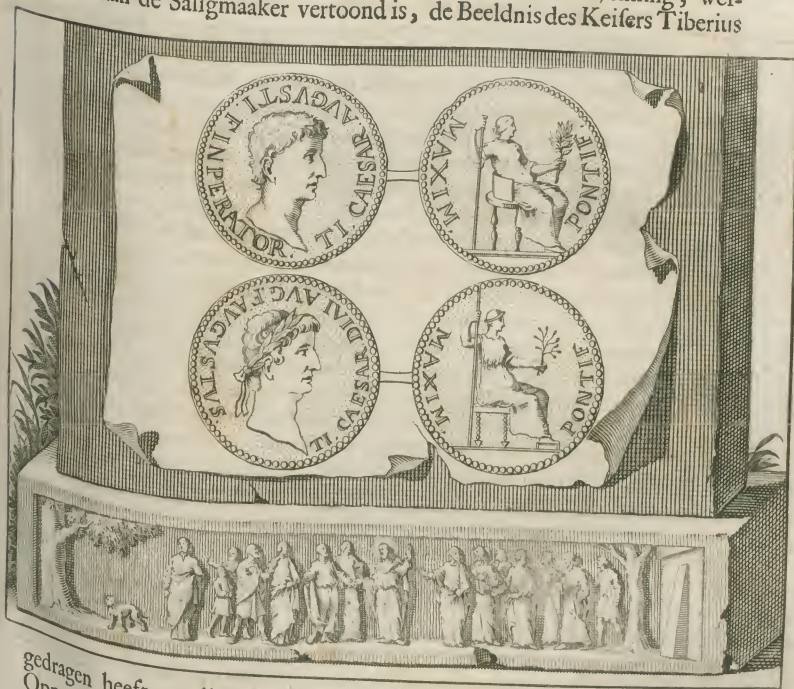 aan de Saligmaaker vertoond is, de Beeldnis des Keiſers Tiberius
TI. CAESAR. AVGVSTI F INPERATOR.
PONTIF. MAXIM.
TI CAESAR DIVI AVG. F AVGVSTVS.
PONTIF MAXIM.
gedragen